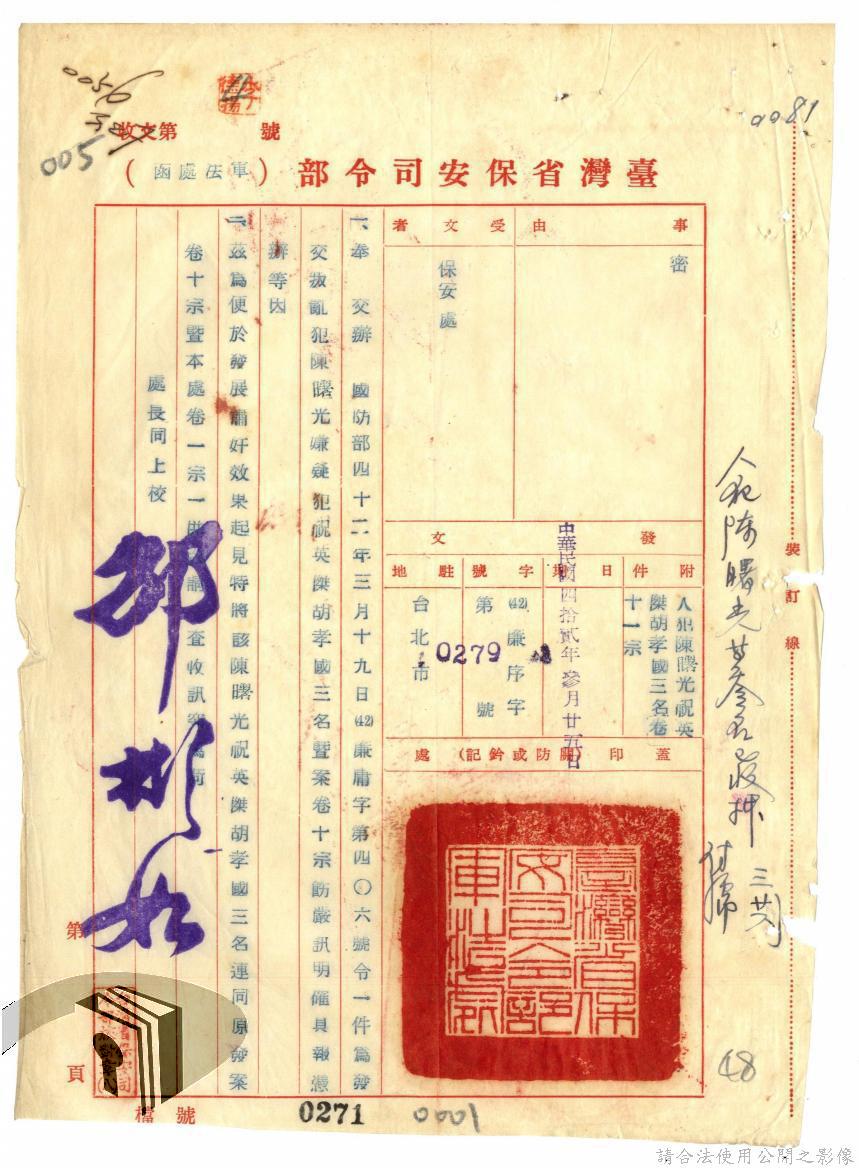 0056
005
收文第 號
0081
臺灣省保安司令部(軍法處函)
事由
密
受文者
保安處
發文
附件
人犯陳曙光祝英
傑胡孝國三名卷
十一宗
日期
中華民國四拾貳年叁月廿五日
字號
(42)廉序字
第0279號
駐地
台北市
蓋印(關防或鈐記)處
臺灣省保
安司令部
軍法處
一、奉 交辦 國防部四十二年三月十九日(42)廉庸字第四〇六號令一件為發
交叛亂犯陳曙光嫌疑犯祝英傑胡孝國三名暨案卷十宗飭嚴訊明確具報憑
辦等因
二、茲為便於發展肅奸效果起見特將該陳曙光祝英傑胡孝國三名連同原發案
卷十宗暨本處卷一宗一併 請查收訊 為荷
處長同上校
邵彬如
人犯陳曙光等叁名收押
裝訂線
第 頁
檔號
0271
0001
48
請合法使用公開之影像